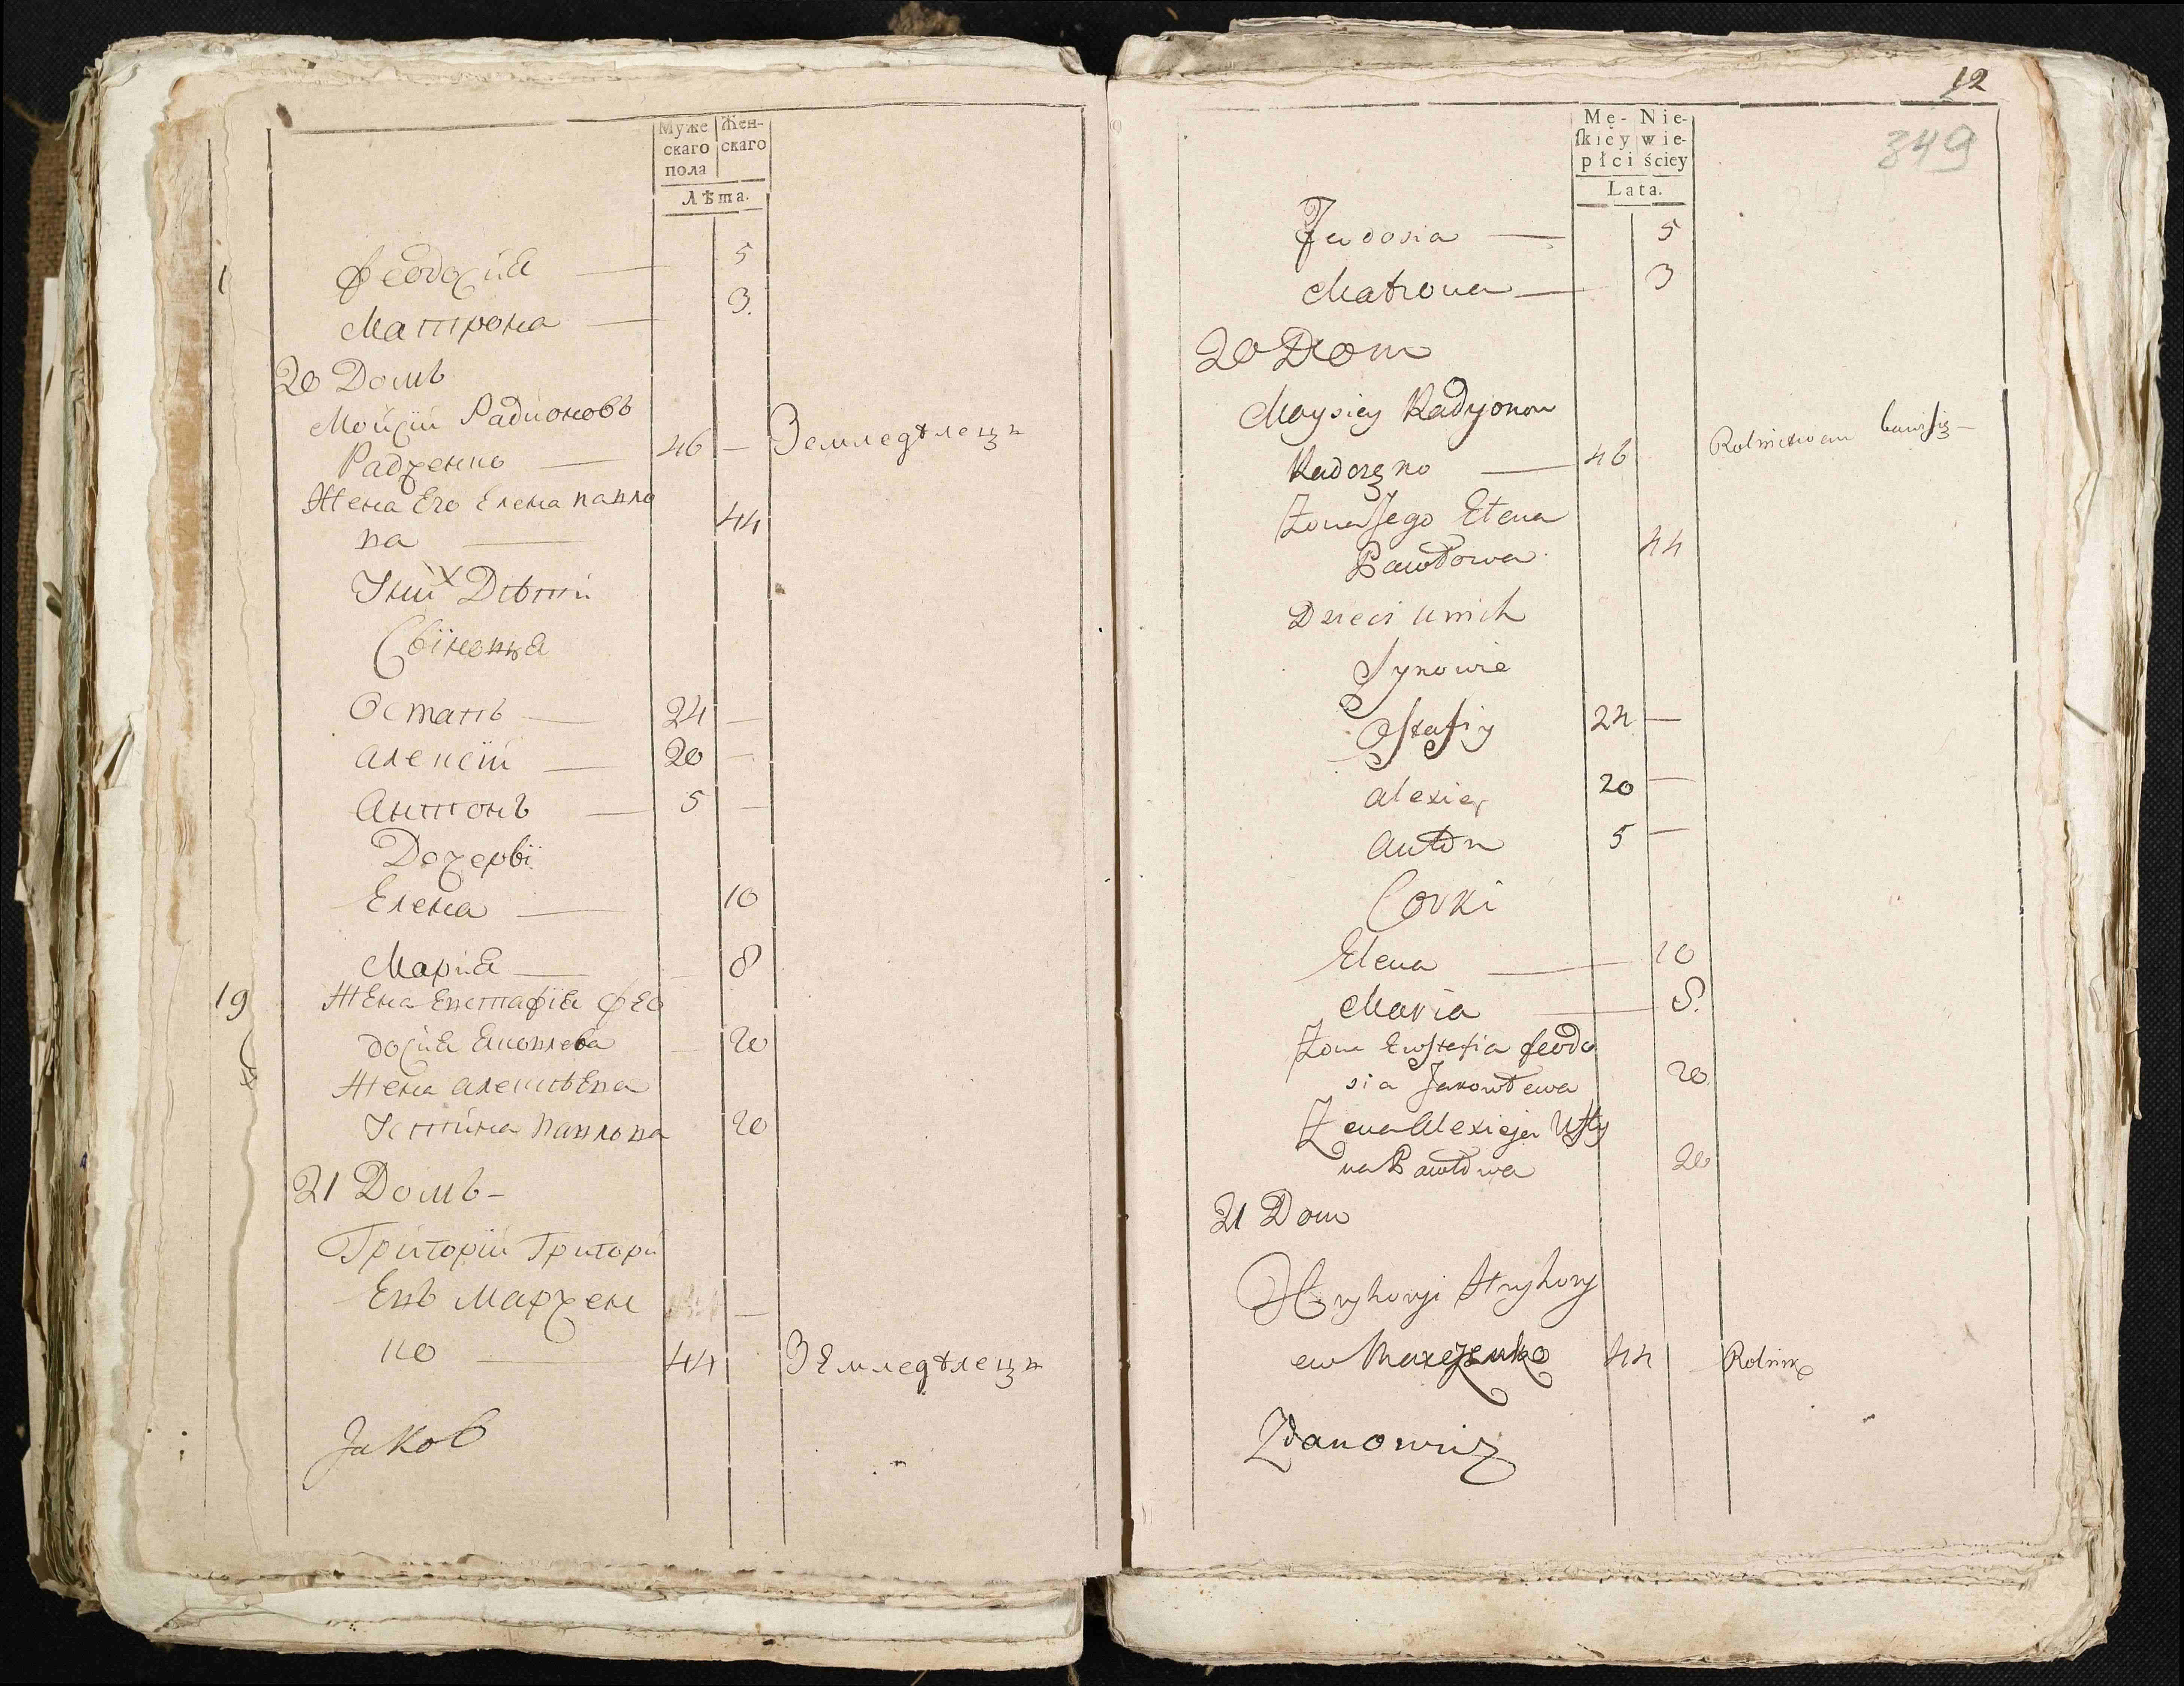 Муже Жен-
скаго скаго
пола
Лѣта.
1 Феодосия — 5
Матрона — 3.
20 Домъ
Мойсій Радионовъ
Радченко — 46 — Земледѣлецъ
Жена Его Елена павло
ва — 44
У них Дѣти
Сыновья
Остапъ — 24 —
алексій — 20 —
Антонъ — 5 —
Дочери
Елена — 10
Мария — 8
19 Жена Евстафія Фео
досия Яковлева — 20
Жена алексѣева
Устина павлова 20
21 Домъ -
Григорій Григори
Евъ Марчен
ко — 44 ЗЕмледѣлецъ
Jakob
12
349
Mę- Nie-
skiey wie-
płci ściey
Lata.
Feodosia — 5
Matrona — 3
20 Dom
Moysiey Radyonow
Radczęko — 46 Rolnictwem bawi się —
Zona Jego Elena
Pawłowa 44
Dzieci u nich
Synowie
Ostafiy 24 —
Alexiey 20 —
Anton 5 —
Corki
Elena — 10
Maria — 8.
Zona Ewstafia feodo
sia Jakowlewa 20
Zona Alexieja Usty
na Pawłowa 20
21 Dom
Hryhoryi Hryhory
ew Marczenko 44 Rolnik
Zdanowicz